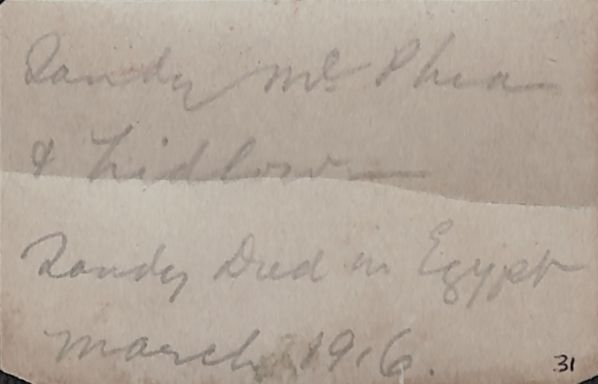 Sandy McPhea
& Lidlow
Sandy Died in Egypt
March 1916.
31